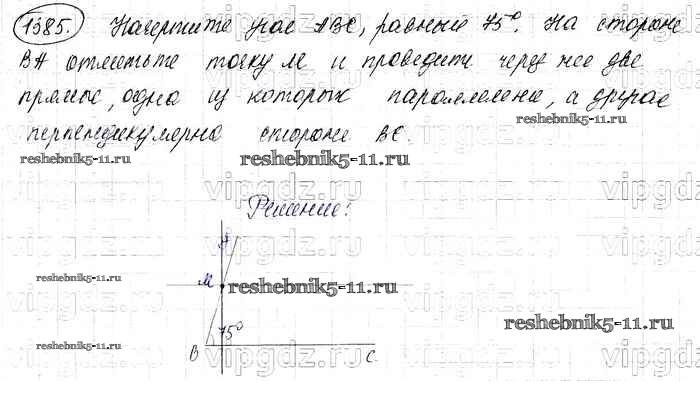 1385. Начертите угол ABC, равный 75°. На стороне
BA отметьте точку M и проведите через нее две
прямые, одна из которых параллельна, а другая
перпендикулярна стороне BC.
reshebnik5-11.ru reshebnik5-11.ru reshebnik5-11.ru
vipgdz.ru vipgdz.ru
Решение:
A
reshebnik5-11.ru M reshebnik5-11.ru
vipgdz.ru vipgdz.ru
reshebnik5-11.ru
75°
reshebnik5-11.ru B C
vipgdz.ru vipgdz.ru